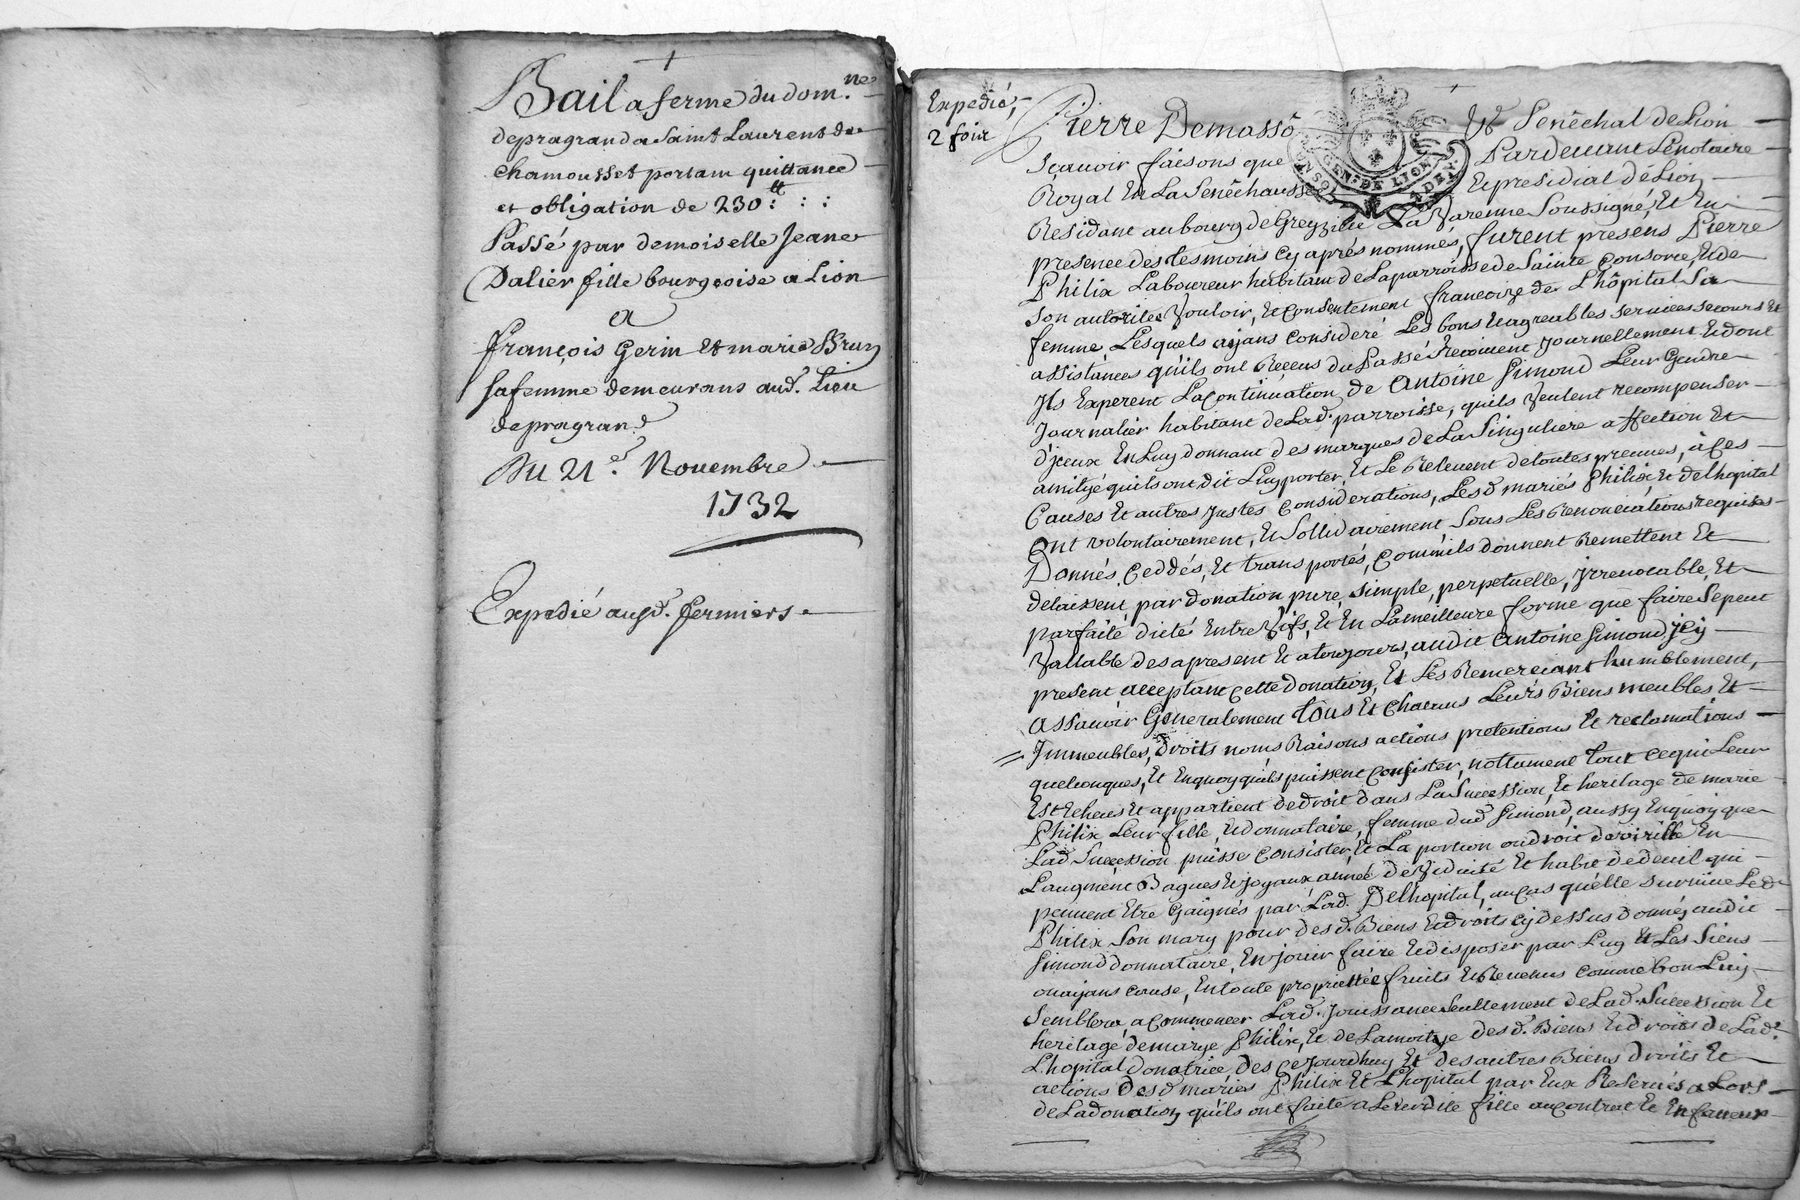 Bail a ferme du dom.ne
de pragrand a Saint Laurent de
chamousset portant quittance
et obligation de 230 tt : : :
Passé par demoiselle Jeane
Dalier fille bourgeoise a Lion
a
François Gerin et marie Brun
sa femme demeurans aud.t Lieu
de pragrand
Du 21.e Novembre
1732
Expedié ausd.t fermiers
Expedié,
2 fois
Pierre Demasso Senêchal de Lion
Scavoir faisons que Pardevant Le notaire
Royal En La Senêchaussée Et presidial de Lion
GEN. DE LION
Residant au bourg de Greyzieu La Varenne Soussigné, Et En
presence des tesmoins cy aprés nommés, furent presens Pierre
Philix Laboureur habitant de La parroisse de Sainte Consorce, Et de
Son autorité Vouloir, Et Consentement francoize de L'hôpital Sa
femme, Lesquels ayans Consideré Les bons Et agreables services secours Et
assistances qu'ils ont Receus du Passé Recoivent Journellement Et dont
Ils Experent La Continuation de Antoine Simond Leur Gendre
Journalier habitant de Lad. parroisse, qu'ils Veulent recompenser
d'jceux En Luy donnant des marques de La Singuliere affection Et
amityé qu'ils ont dit Luy porter, Et Le Relevent de toutes preuves, à Ces
Causes Et autres Justes Considerations, Lesd. mariés Philix, Et delhopital
Ont volontairement, Et Sollidairement Sous Les Renonciations requises
Donnés, Ceddés, Et transportés, Comm'ils donnent Remettent Et
delaissent, par donation pure, simple, perpetuelle, Jrrevocable, Et
parfaite dicte Entre Vifs, Et En La meilleure forme que faire Se peut
Vallable des apresent Et a toujours, audit Antoine Simond Jcy
present acceptant cette donation, Et Les Remerciant humblement,
Assavoir Generalement tous Et Chacuns Leurs Biens meubles Et
Immeubles, Droits noms Raisons actions pretentions Et reclamations
quelconques, Et En quoy qu'ils puissent Consister, nottament tout Ce qui Leur
Est Echeus Et appartient de droit dans La Succession, Et heritage de marie
Philix Leur fille Et donnataire, femme dud Simond, aussy En quoy que
Lad. Succession puisse Consister, Et La portion ou droit de virille En
L'augment Bagues Et Joyaux année de Viduité Et habit de deuil qui
peuvent Etre Gaignés par Lad. Delhopital, au cas qu'elle survive Led.
Philix Son mary pour desd. Biens Et droits cy dessus donnés audit
Simond donnataire, En Jouir faire Et disposer par Luy Et Les Siens
ou ayans cause, En toute proprietté fruits Et Revenus comme bon Luy
Semblera, a Commencer Lad. Jouissance Seullement de Lad. Succession Et
heritage de marye Philix, Et de La moitye desd. Biens Et droits de Lad.
L'hopital donatrice, des Ce Jourdhuy Et des autres Biens droits Et
actions desd mariés Philix Et L'hopital par Eux Reservés a Lors
de La donation qu'ils ont faite a Leurdite fille au contrat Et En faveur